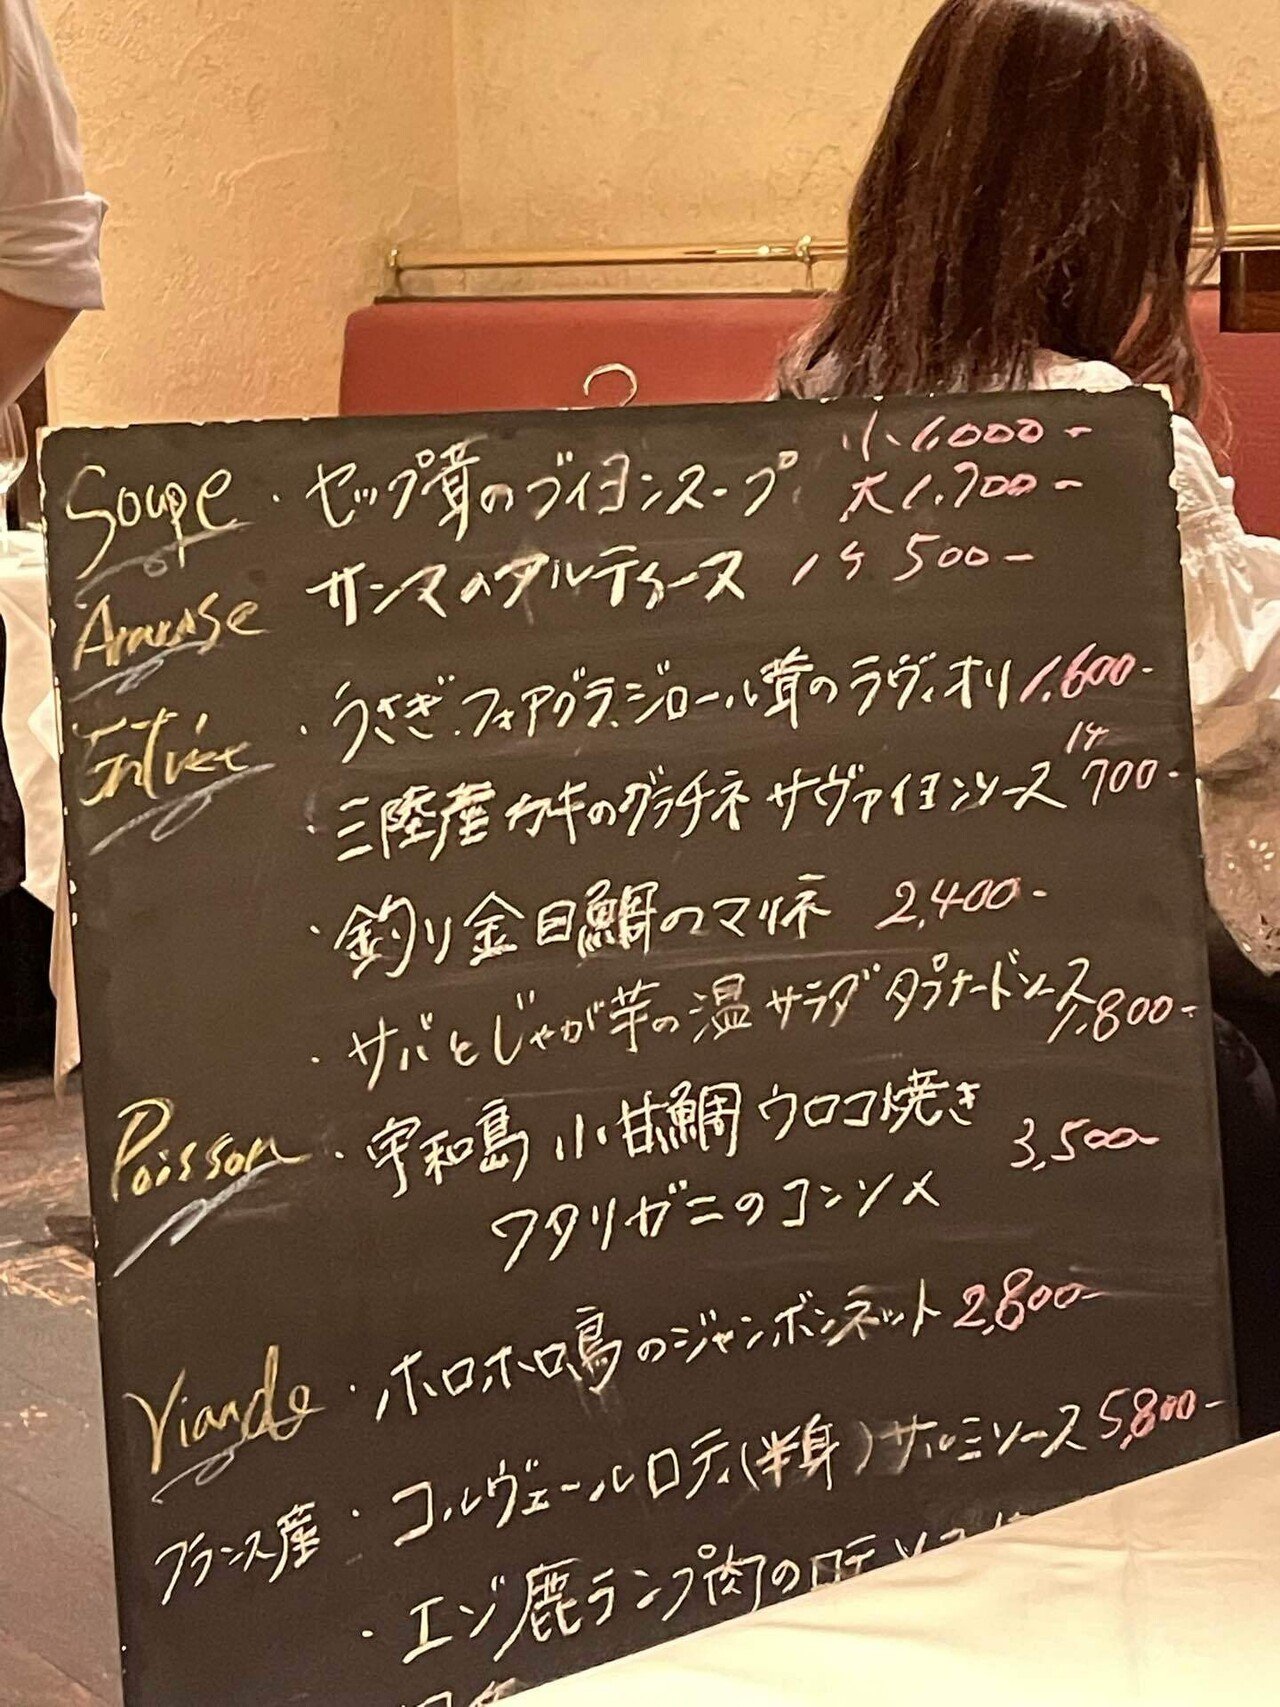 Soupe ・セップ茸のブイヨンスープ 小 1,000-
大 1,700-
Amuse サンマのタルティーヌ 1ケ 500-
Entrée ・うさぎ、フォアグラ、ジロール茸のラヴィオリ 1,600-
・三陸産カキのグラチネ サヴァイヨンソース 1ケ 700-
・釣り金目鯛のマリネ 2,400-
・サバとじゃが芋の温サラダ タプナードソース 1,800-
Poisson ・宇和島 小甘鯛 ウロコ焼き
ワタリガニのコンソメ 3,500-
Viande ・ホロホロ鳥のジャンボンネット 2,800-
フランス産 ・コルヴェールロティ(半身)サルミソース 5,800-
・エゾ鹿ランプ肉のロティ